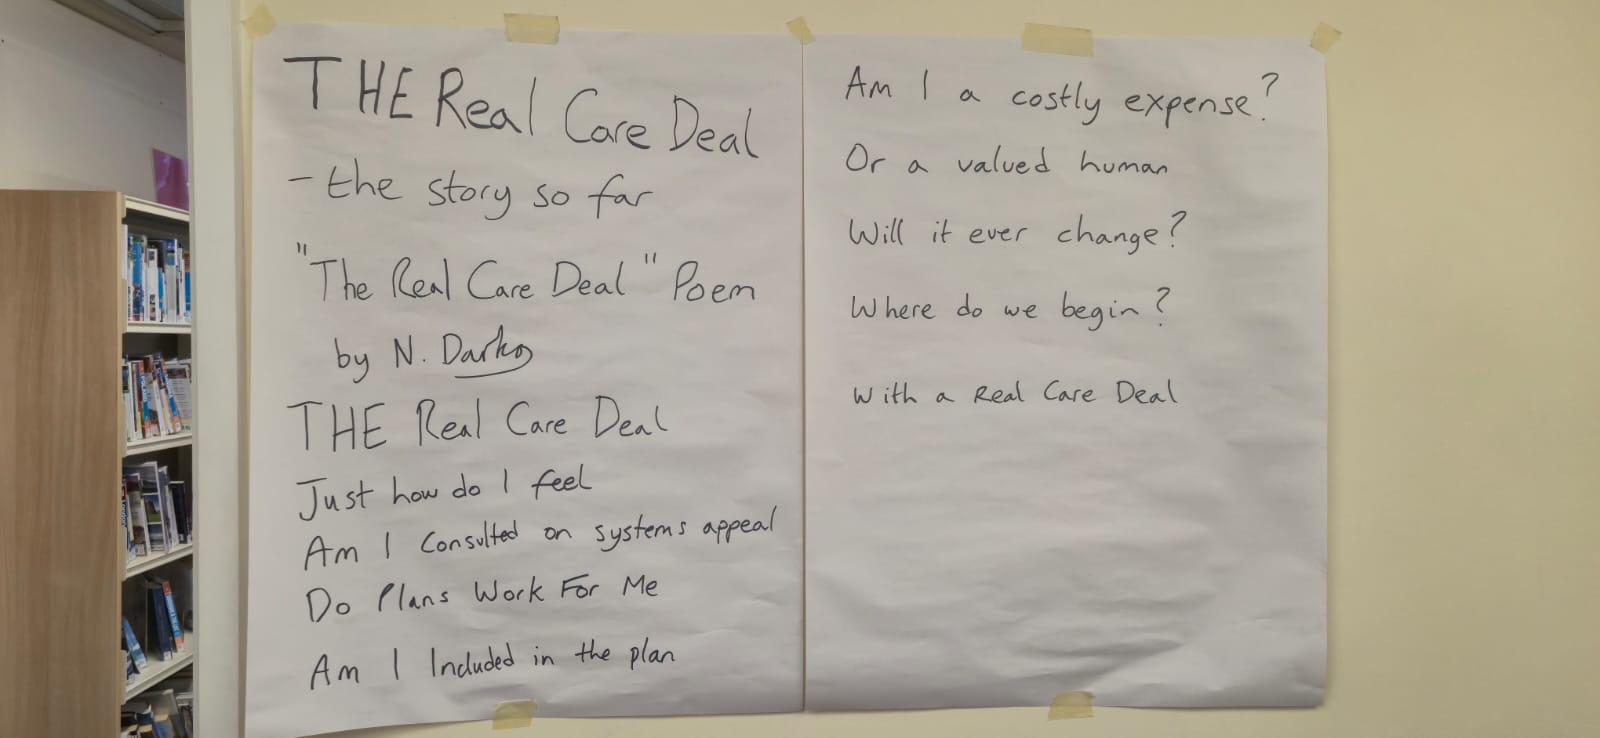 THE Real Care Deal
- the story so far
"The Real Care Deal" Poem
by N. Darko
THE Real Care Deal
Just how do I feel
Am I Consulted on systems appeal
Do Plans Work For Me
Am I Included in the plan
Am I a costly expense?
Or a valued human
Will it ever change?
Where do we begin?
With a Real Care Deal